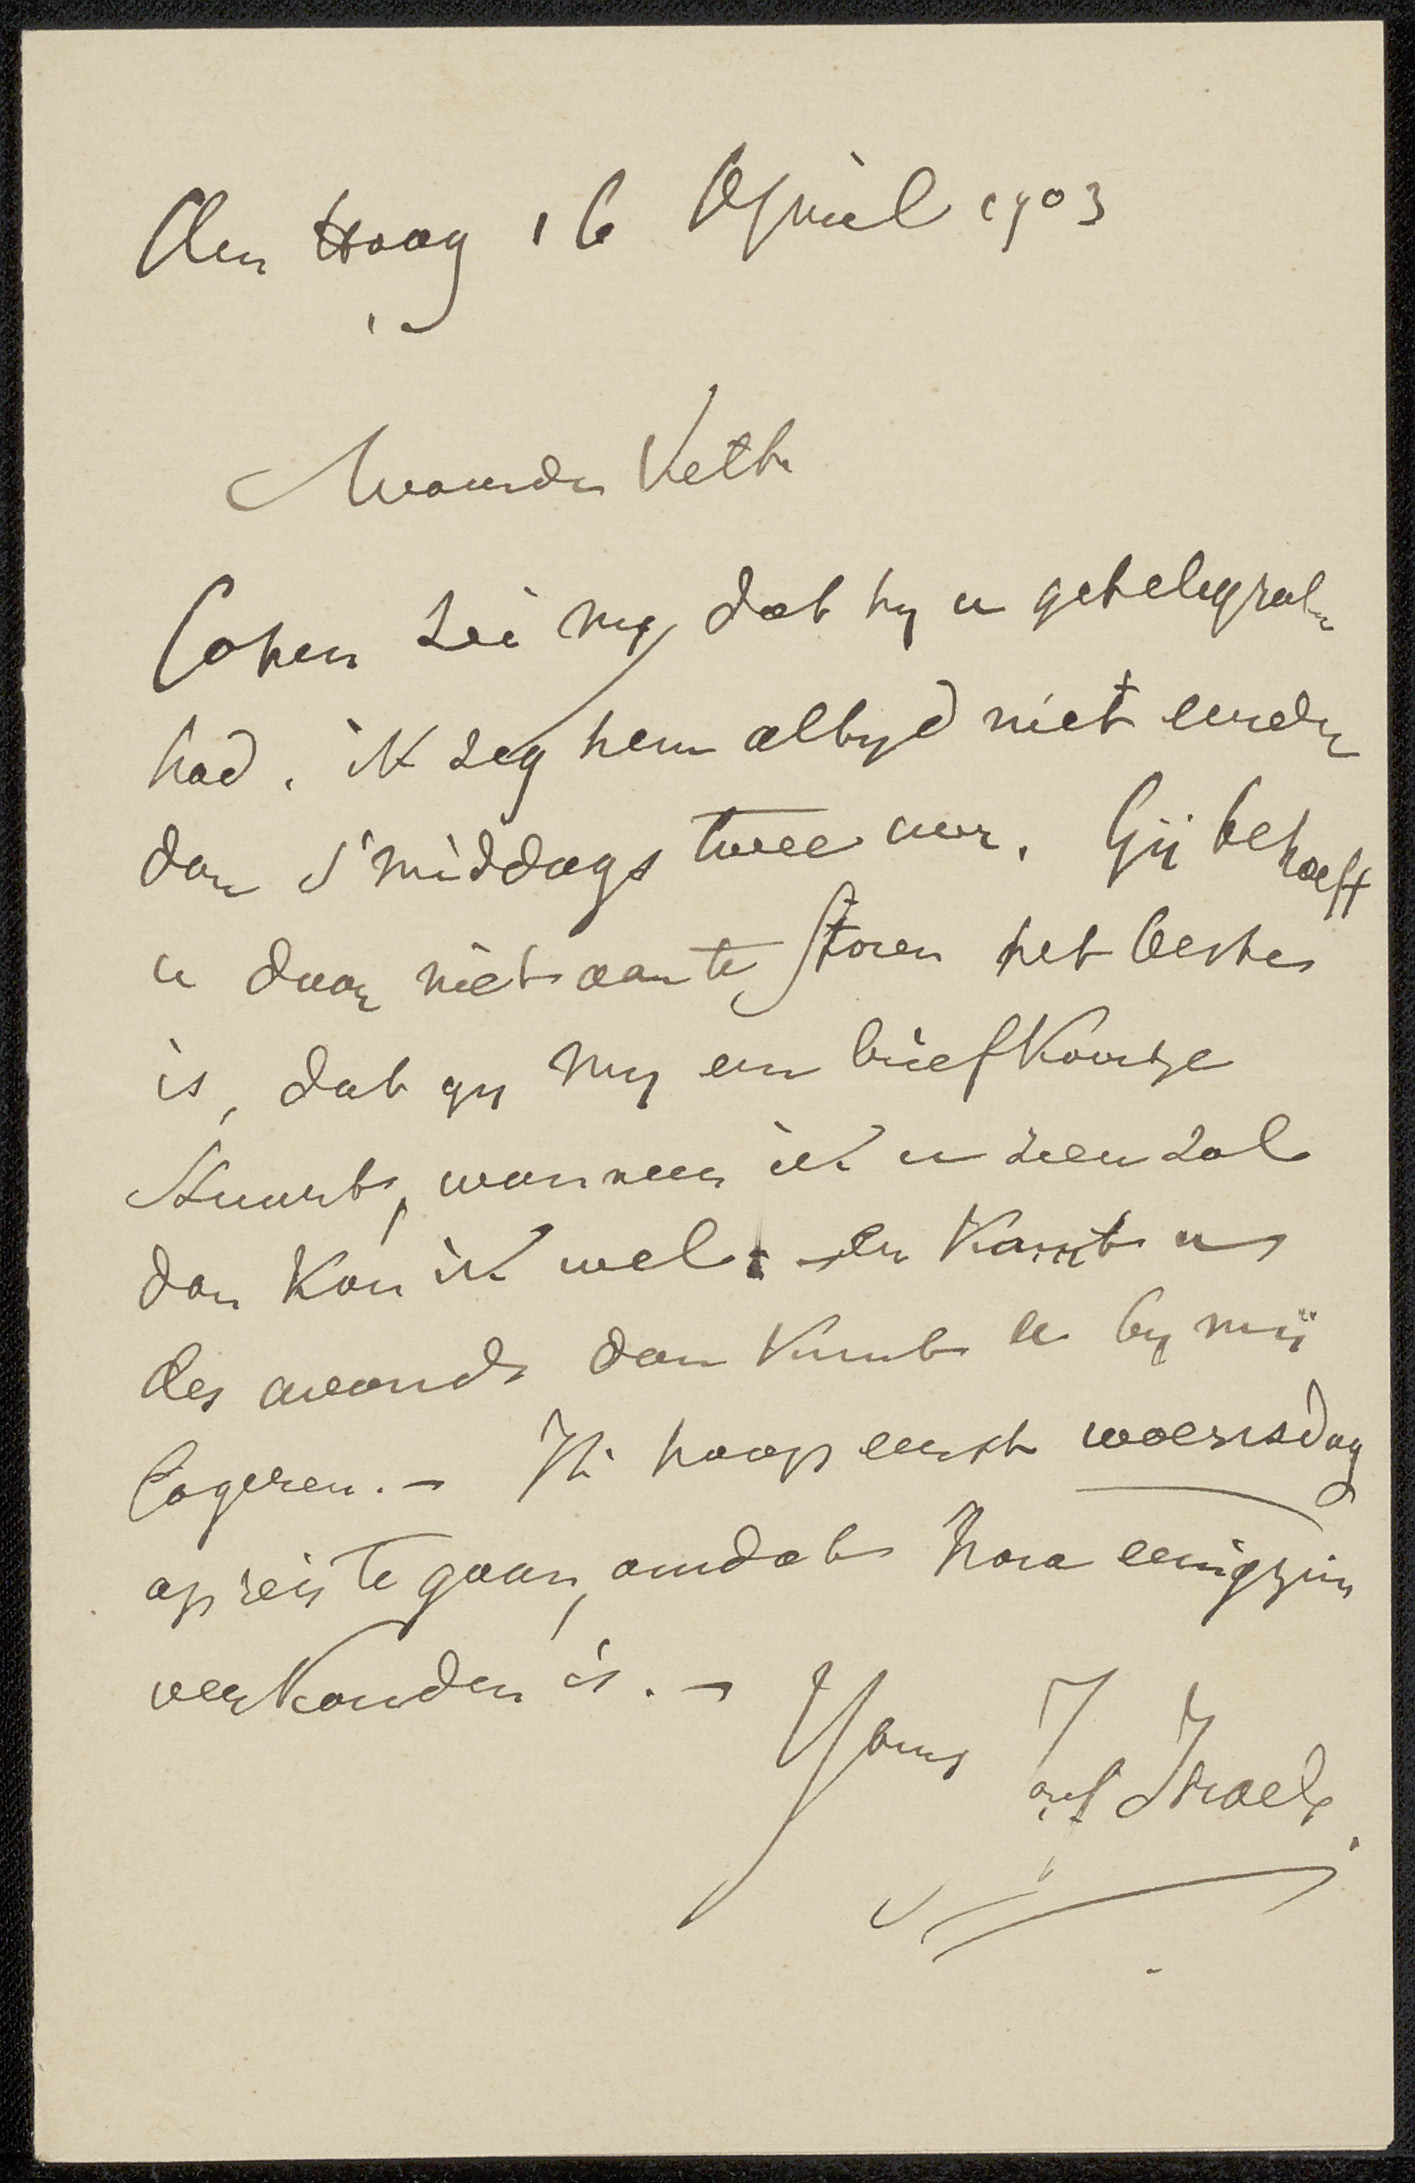 den Haag 16 April 1903
Waarde Veth
Cohen zei my dat hy u getelegrafeer
had. ik zeg hem altyd niet eerder
dan s'middags twee uur. Gij behoeft
u daar niet aan te storen het beste
is, dat gy my een briefkaartje
stuurt, wanneer ik u zien zal
dan kan ik wel. en komt u
des avonds dan kunt u by mij
logeren. – Ik hoop eerst woensdag
op reis te gaan, omdat eenigzins
verkouden is. –
Jozef Israels